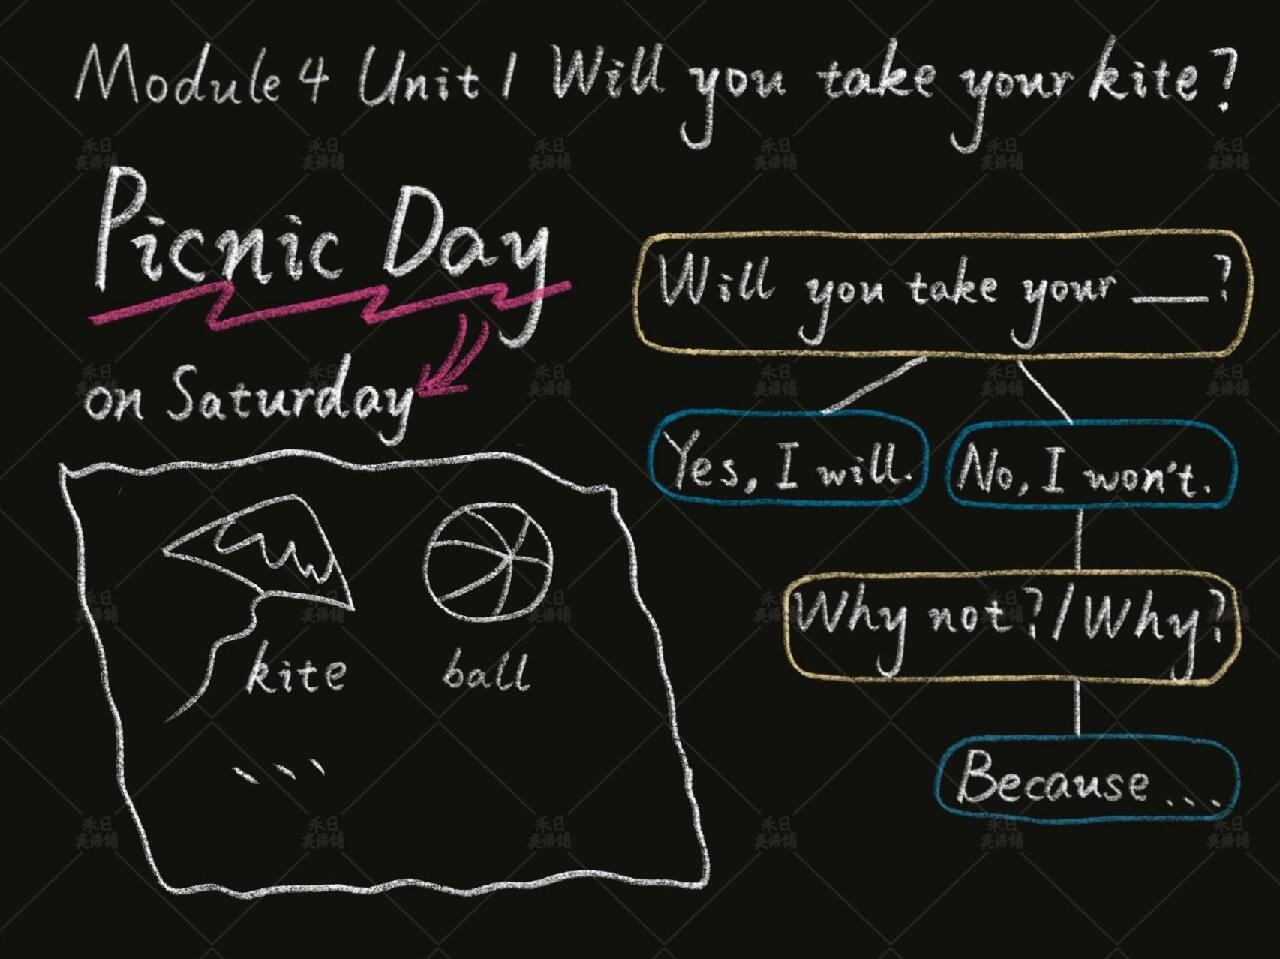 Module 4 Unit 1 Will you take your kite?
Picnic Day
on Saturday
kite
ball
...
Will you take your ___?
Yes, I will.
No, I won't.
Why not?/Why?
Because...
禾日
英语铺